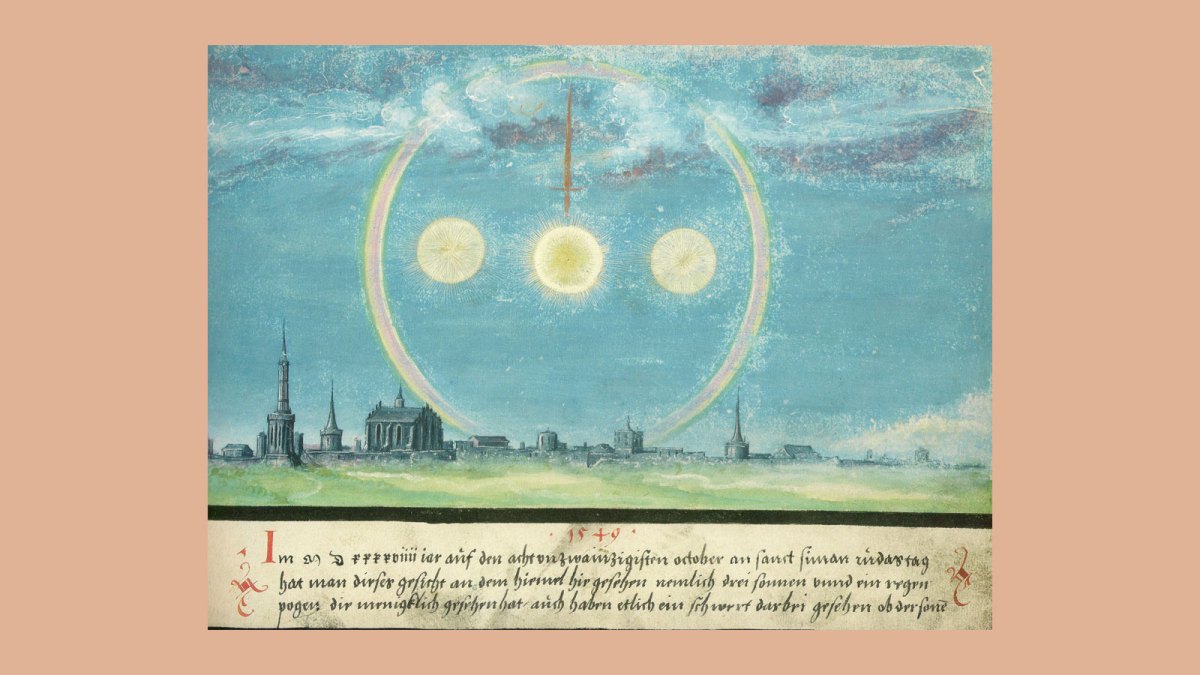 · 1549 ·
Im M D xxxxviiii iar auf den acht vnzwainzigisten october an sanct siman
hat man dieses gesicht an dem hiemel hie gesehen nemlich drei sonnen vnnd ein regen
pogen die menigklich gesehen hat auch haben etlich ein schwert darbei gesehen ob der sone